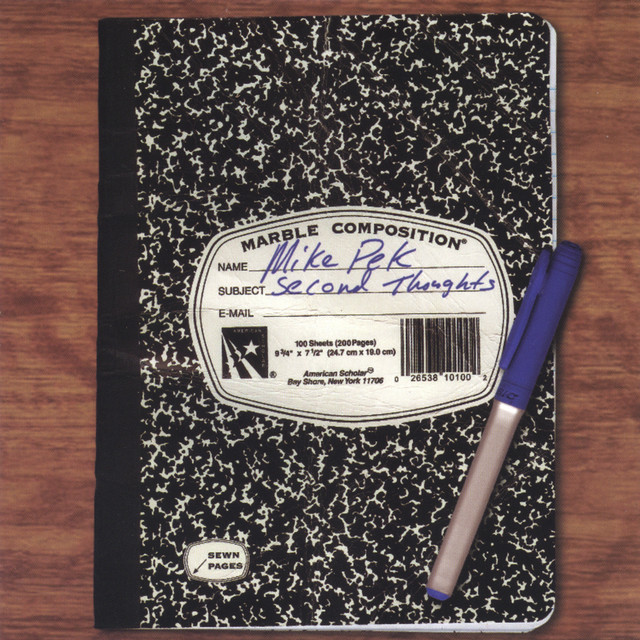 MARBLE COMPOSITION®
NAME Mike Pek
SUBJECT Second Thoughts
E-MAIL
100 Sheets (200 Pages)
9 3/4" x 7 1/2" (24.7 cm x 19.0 cm)
American Scholar
Bay Shore, New York 11706
0 26538 10100 2
SEWN
PAGES